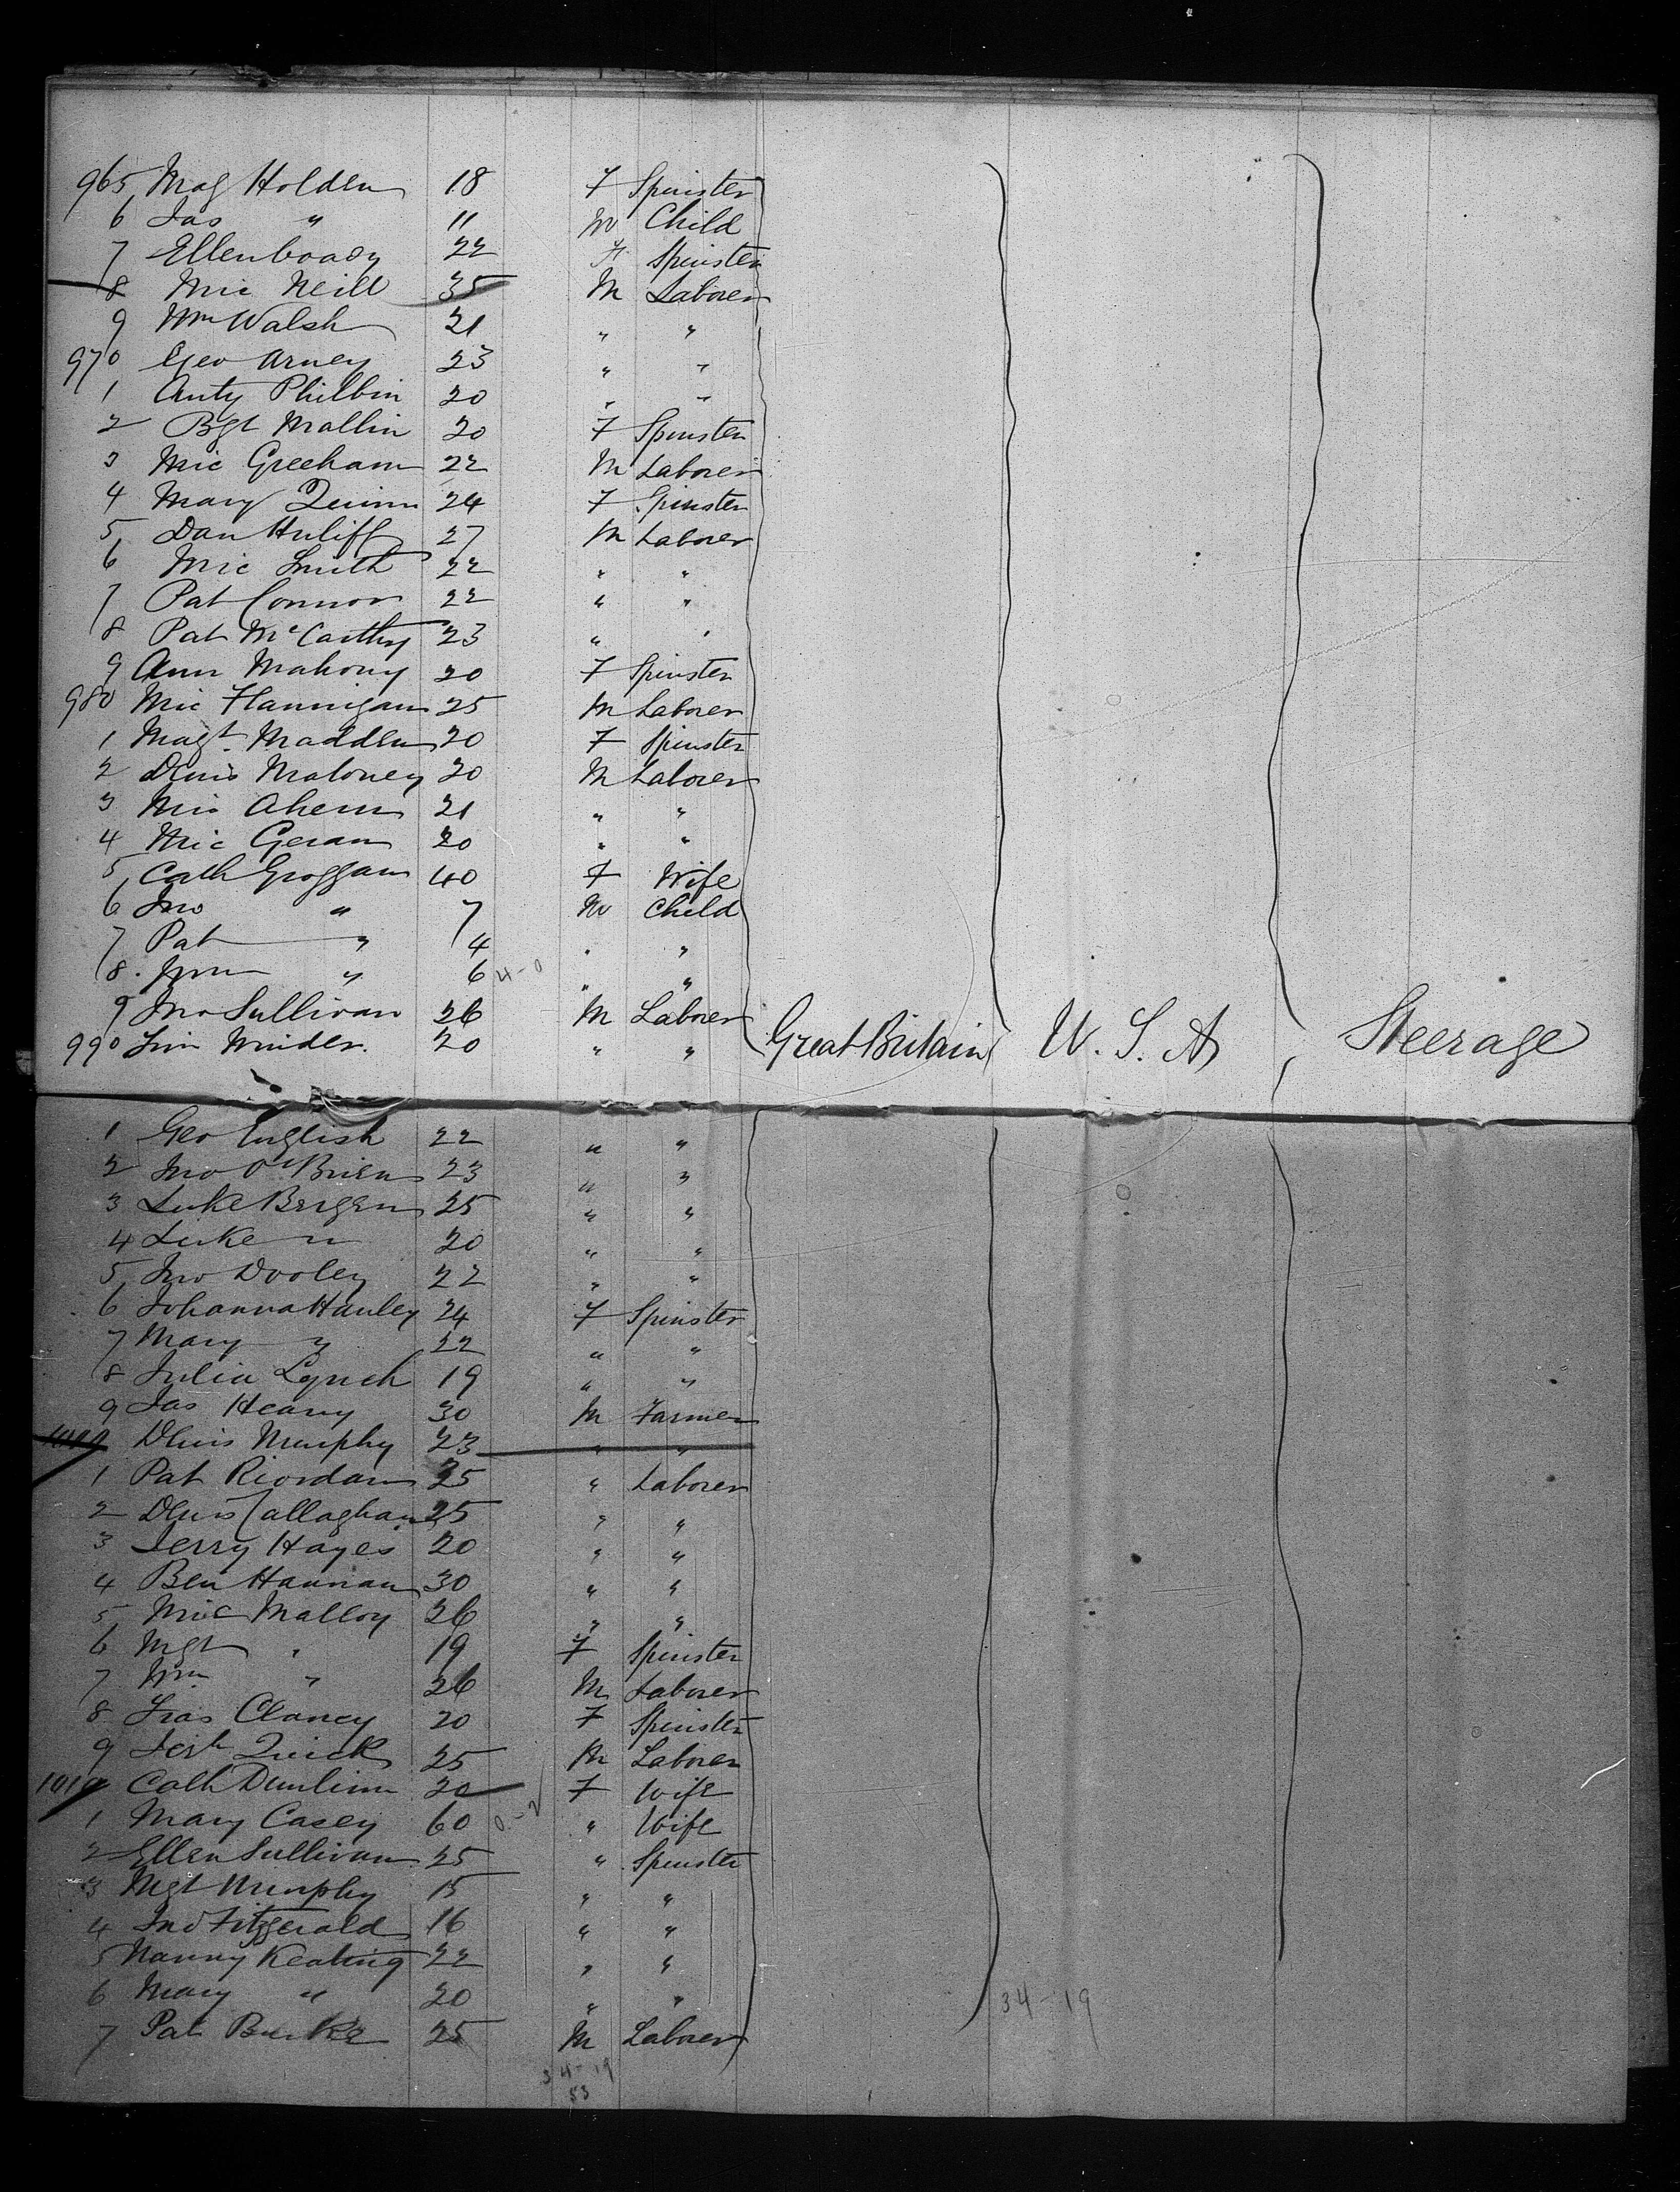 965 Mag Holden 18 F Spinster
6 Jas " 11 M Child
7 Ellen Coady 22 F Spinster
8 Mic Neill 35 M Laborer
9 Wm Walsh 21 " "
970 Geo Arney 23 " "
1 Anty Philbin 20 " "
2 Bgt Mallin 20 F Spinster
3 Mic Greeham 22 M Laborer
4 Mary Quinn 24 F Spinster
5 Dan Huliff 27 M Laborer
6 Mic Smith 22 " "
7 Pat Connor 22 " "
8 Pat McCarthy 23 " "
9 Ann Mahony 20 F Spinster
980 Mic Flannigan 25 M Laborer
1 Magt Madden 20 F Spinster
2 Denis Maloney 20 M Laborer
3 Mic Ahern 21 " "
4 Mic Geran 20 " "
5 Cath Groggan 40 F Wife
6 Jno " 7 M Child
7 Pat " 4 " "
8 Wm " 6 4-0 " "
9 Jno Sullivan 26 M Laborer
990 Jim Minder 20 " " Great Britain U. S. A Steerage
1 Geo English 22 " "
2 Jno O'Brien 23 " "
3 Luke Bergen 25 " "
4 Luke " 20 " "
5 Jno Dooley 22 " "
6 Johanna Hanley 24 F Spinster
7 Mary " 22 " "
8 Julia Lynch 19 " "
9 Jas Heany 30 M Farmer
Denis Murphy 23 " "
1 Pat Riordan 25 " Laborer
2 Denis Callaghan 25 " "
3 Jerry Hayes 20 " "
4 Ben Hannan 30 " "
5 Mic Malloy 26 " "
6 Mgt " 19 F Spinster
7 Wm " 26 M Laborer
8 Fras Clancy 20 F Spinster
9 Jerh Quick 25 M Laborer
1010 Cath Dunlinn 20 F Wife
1 Mary Casey 60 " Wife
2 Ellen Sullivan 25 " Spinster
3 Mgt Murphy 15 " "
4 Jno Fitzgerald 16 " "
5 Nanny Keating 22 " "
6 Mary " 20 " " 34-19
7 Pat Burke 25 M Laborer
34-19
53